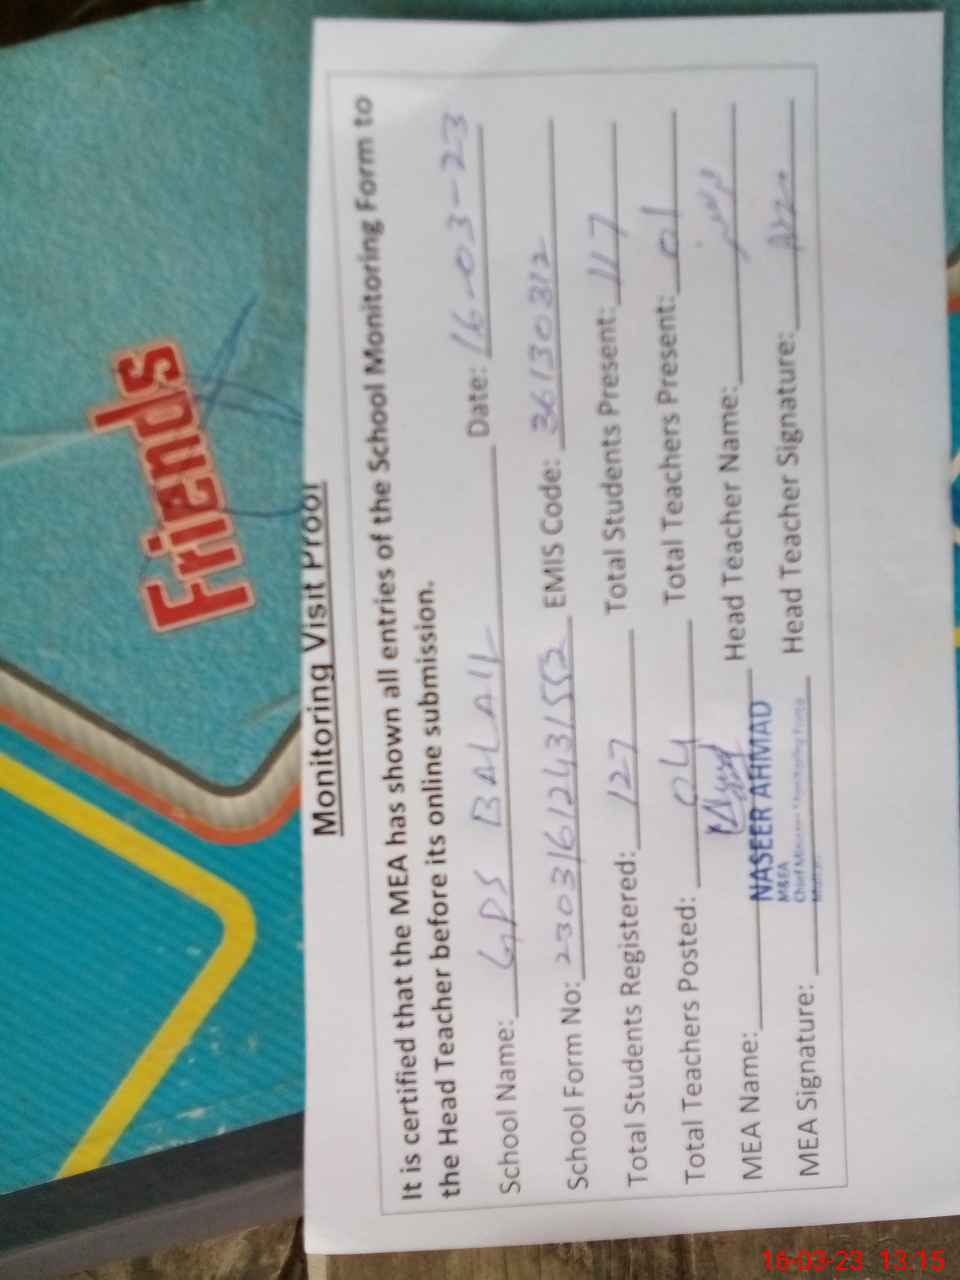 Friends
Monitoring Visit Proof
It is certified that the MEA has shown all entries of the School Monitoring Form to
the Head Teacher before its online submission.
School Name: GPS BALAIL Date: 16-03-23
School Form No: 23031612431552 EMIS Code: 36130312
Total Students Registered: 127 Total Students Present: 117
Total Teachers Posted: 04 Total Teachers Present: 01
MEA Name: NASEER AHMAD Head Teacher Name:
M&EA
MEA Signature: Head Teacher Signature:
16-03-23 13:15